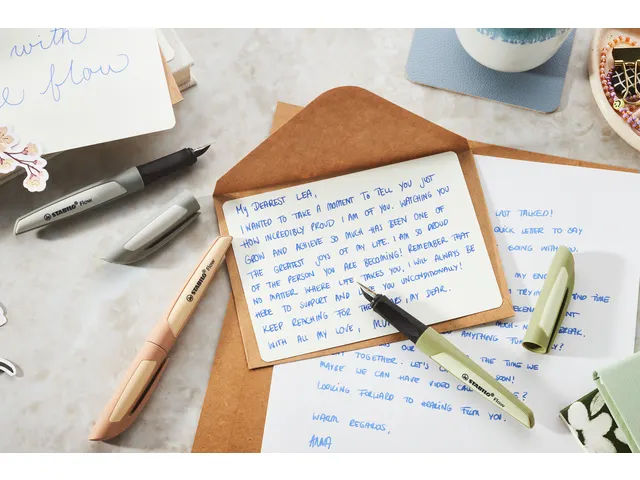 with
flow
STABILO flow
STABILO flow
My DEAREST LEA,
I WANTED TO TAKE A MOMENT TO TELL YOU JUST
HOW INCREDIBLY PROUD I AM OF YOU. WATCHING YOU
GROW AND ACHIEVE SO MUCH HAS BEEN ONE OF
THE GREATEST JOYS OF MY LIFE. I AM SO PROUD
OF THE PERSON YOU ARE BECOMING! REMEMBER THAT
NO MATTER WHERE LIFE TAKES YOU, I WILL ALWAYS BE
HERE TO SUPPORT AND YOU UNCONDITIONALLY!
KEEP REACHING FOR THE MY DEAR.
WITH ALL MY LOVE,
STABILO flow
LAST TALKED!
QUICK LETTER TO SAY
DOING WITH YOU.
MY
TIME
BREAK.
ANYTHING
OUR THE TIME WE
TOGETHER. LET'S SOON!
MAYBE WE CAN HAVE VIDEO CALL ?
LOOKING FORWARD TO HEARING FROM YOU.
WARM REGARDS,
ANNA